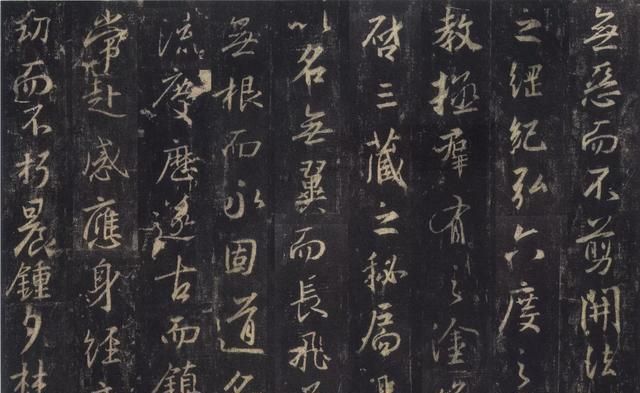 無惡而不剪開法
之綱紀弘六度之
教拯群有之塗
啓三藏之秘扃
以名無翼而長飛
無根而永固道名
流慶歷遂古而鎮
常赴感應身經
劫而不朽晨鍾夕梵